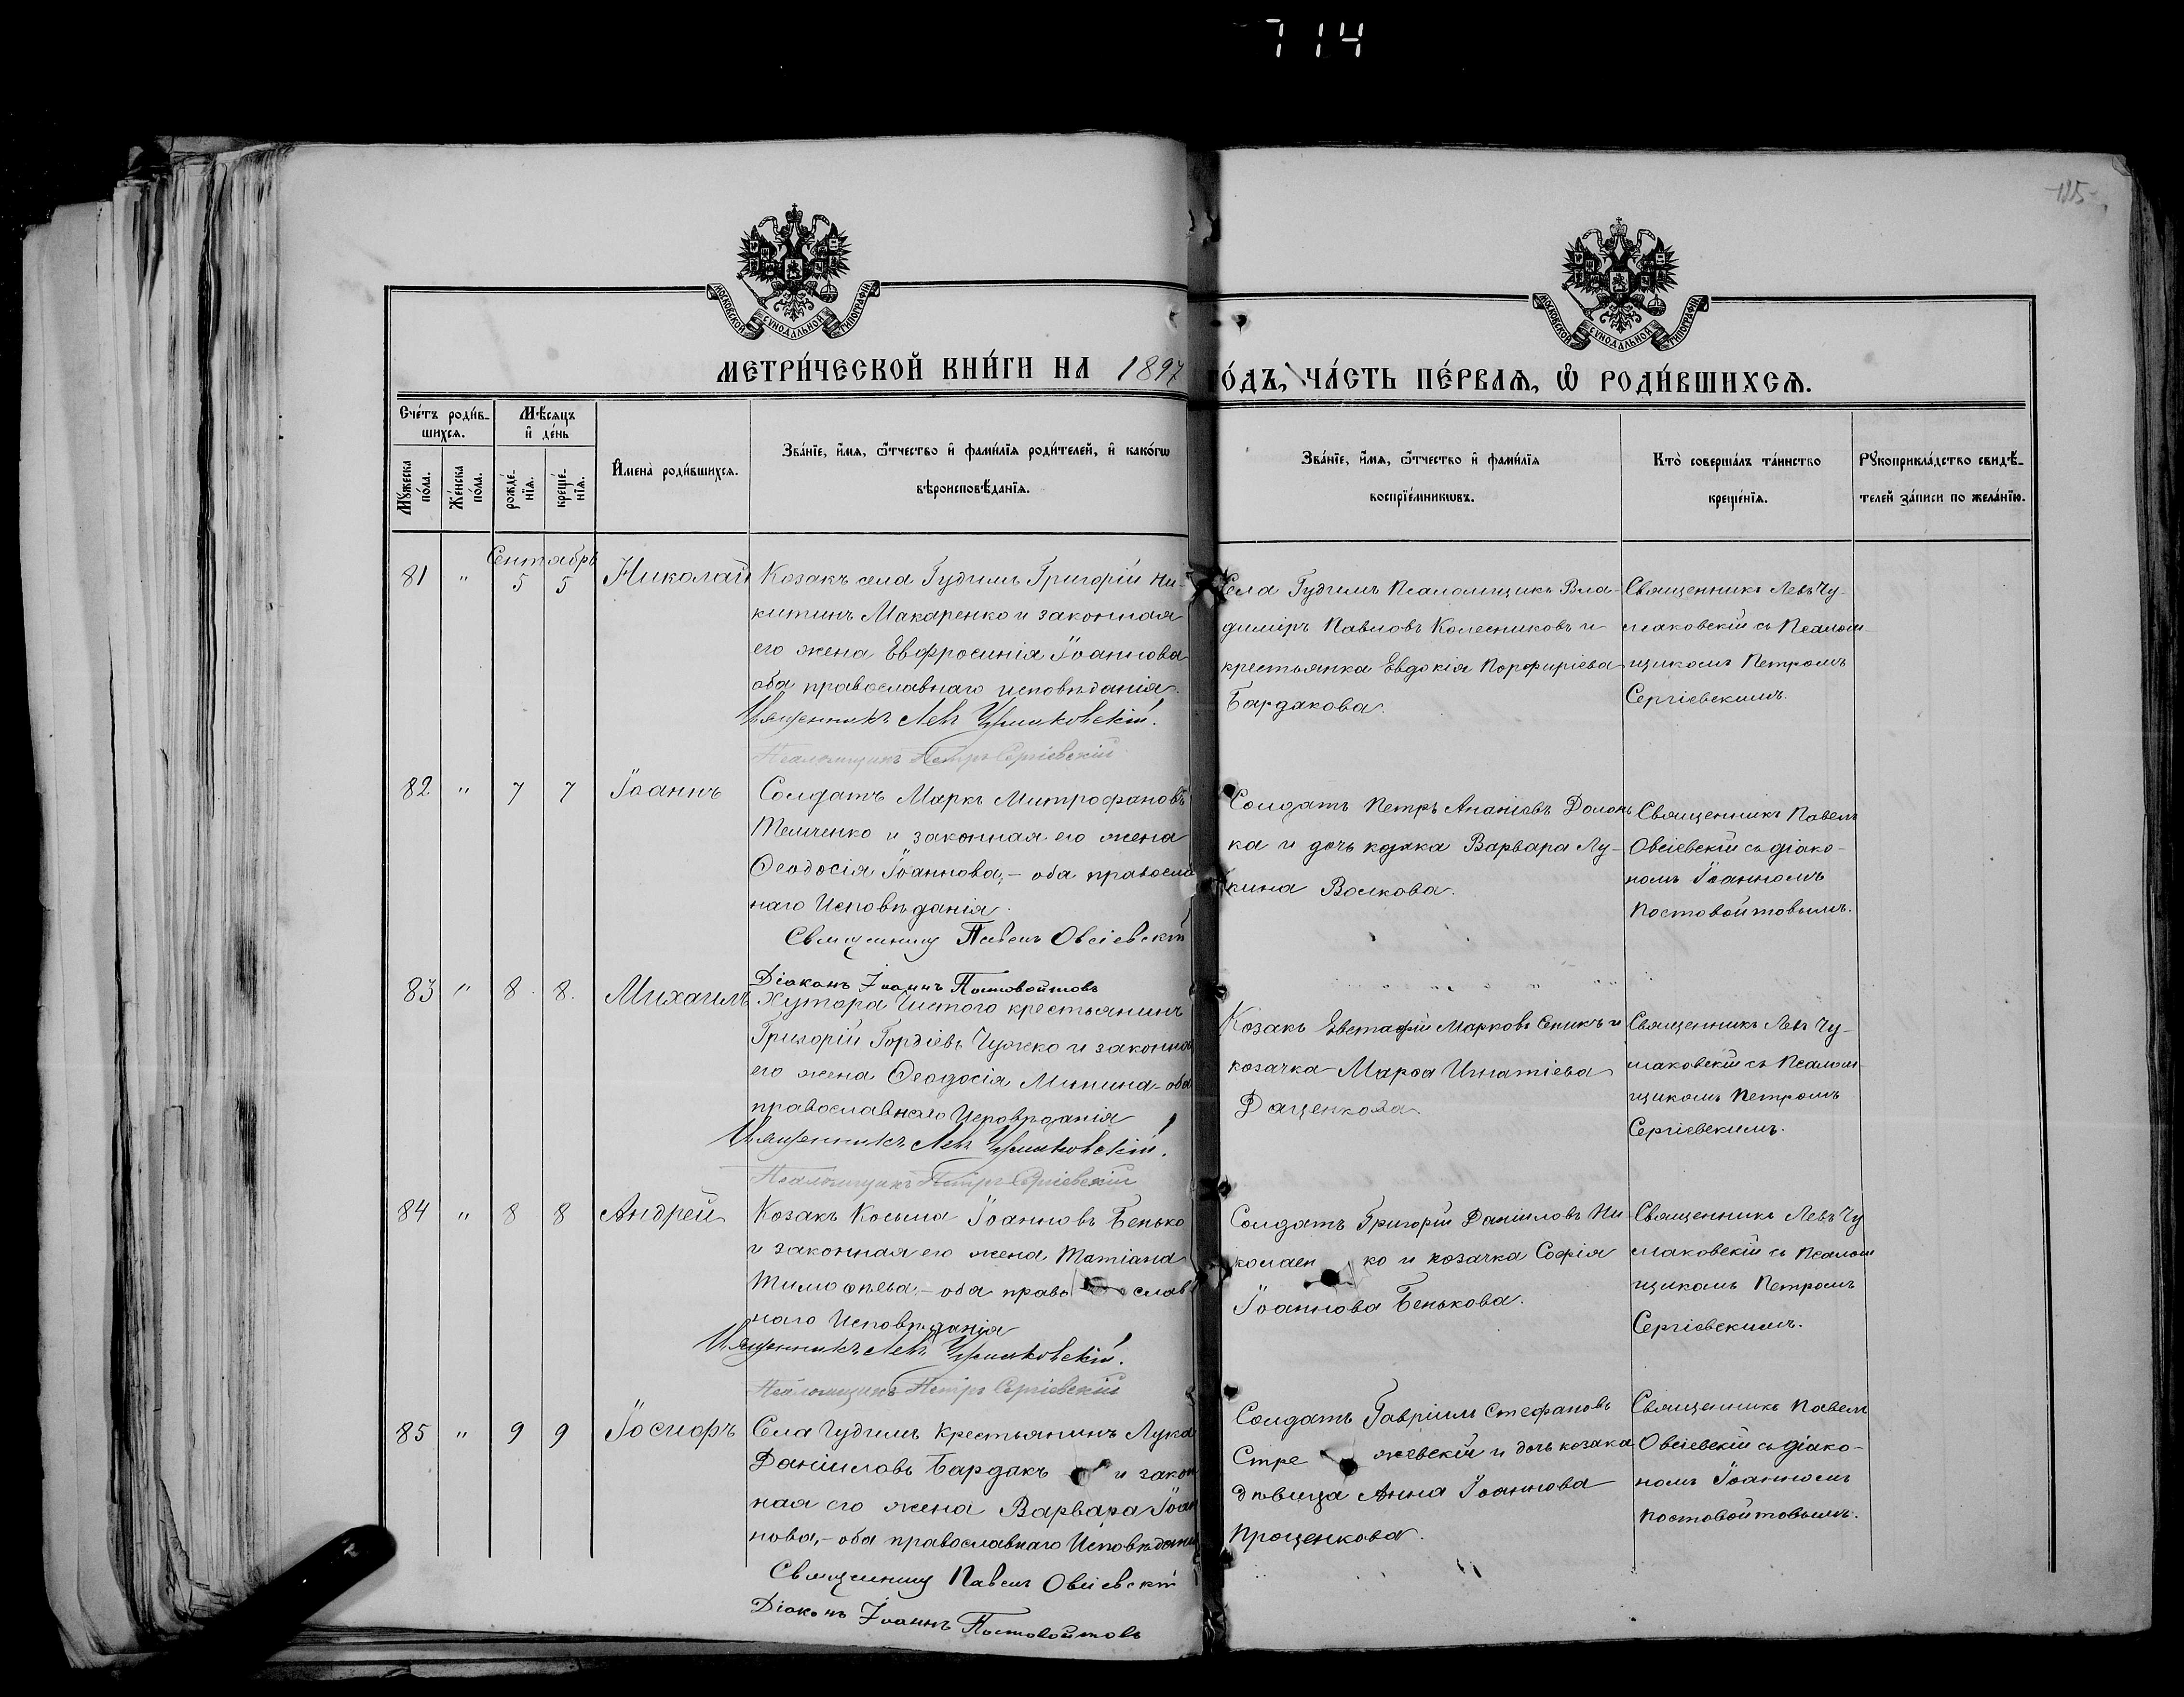 714
-115-
МОСКОВСКОЙ СѴНОДАЛЬНОЙ ТИПОГРАФІИ
МОСКОВСКОЙ СѴНОДАЛЬНОЙ ТИПОГРАФІИ
МЕТРИ́ЧЕСКОЙ КНИ́ГИ НА 1897 ГО́ДЪ, ЧА́СТЬ ПЕ́РВАЯ, Ѡ РОДИ́ВШИХСЯ.
Сче́тъ роди́в-
шихся.
Мѣ́сяцъ
и де́нь
Му́жеска по́ла.
Же́нска по́ла.
рожде́-нія.
креще́-нія.
Имена̀ роди́вшихся.
Зва́нїе, и́мя, ѻ́тчество и фами́лїя роди́телей, и како́гѡ
вѣроисповѣ́данїя.
Зва́нїе, и́мя, ѻ́тчество и фами́лїя
воспрїе́мниковъ.
Кто̀ соверша́лъ та́инство
креще́нїя.
Рꙋкоприкла́дство свидѣ́-
телей за́писи по жела́нїю.
Сентябрь
81 " 5 5 Николай
Козакъ села Гудимъ Григорій Ни-
китинъ Макаренко и законная
его жена Евфросинія Іоаннова
оба православнаго исповѣданія.
Священникъ Левъ Чумаковскій.
Псаломщикъ Петръ Сергіевскій
Села Гудимъ Псаломщикъ Вла-
диміръ Павловъ Колесниковъ и
крестьянка Евдокія Порфиріева
Бардакова.
Священникъ Левъ Чу-
маковскій съ Псалом-
щикомъ Петромъ
Сергіевскимъ.
82 " 7 7 Іоаннъ
Солдатъ Маркъ Митрофановъ
Темченко и законная его жена
Ѳеодосія Іоаннова,- оба правосла
наго Исповѣданія.
Священникъ Павелъ Овсіевскій
Діаконъ Іоаннъ Постовойтовъ
Солдатъ Петръ Ананіевъ Долонь
ка и дочь козака Варвара Лу-
кина Волкова.
Священникъ Павелъ
Овсіевскій съ діако-
номъ Іоанномъ
Постовойтовымъ.
83 " 8. 8. Михаилъ
Хутора Чистого крестьянинъ
Григорій Гордіевъ Чужко и законна
его жена Ѳеодосія Минина- оба
православнаго Исповѣданія
Священникъ Левъ Чумаковскій.
Псаломщикъ Петръ Сергіевскій
Козакъ Евстафій Марковъ Сеникъ и
козачка Марѳа Игнатіева
Даценкова.
Священникъ Левъ Чу-
маковскій съ Псалом-
щикомъ Петромъ
Сергіевскимъ.
84 " 8 8 Андрей
Козакъ Косьма Іоанновъ Бенько
и законная его жена Татіана
Тимоѳеева,- оба право слав
наго Исповѣданія
Священникъ Левъ Чумаковскій.
Псаломщикъ Петръ Сергіевскій
Солдатъ Григорій Даніиловъ Ни-
колаен ко и козачка Софія
Іоаннова Бенькова.
Священникъ Левъ Чу
маковскій съ Псалом
щикомъ Петромъ
Сергіевскимъ.
85 " 9 9 Іосифъ
Села Гудимъ Крестьянинъ Лука
Даніиловъ Бардакъ и закон
ная его жена Варвара Іоан
нова,- оба православнаго Исповѣдані
Священникъ Павелъ Овсіевскій
Діаконъ Іоаннъ Постовойтовъ
Солдатъ Гавріилъ Стефановъ
Стре жевскій и дочь козака
дѣвица Анна Іоаннова
Проценкова.
Священникъ Павелъ
Овсіевскій съ діако-
номъ Іоанномъ
Постовойтовымъ.